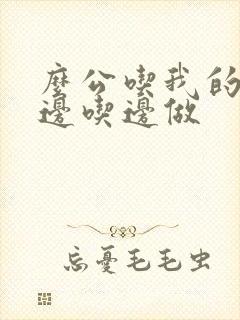 麼公喫我的
邊喫邊做
忘憂毛毛虫